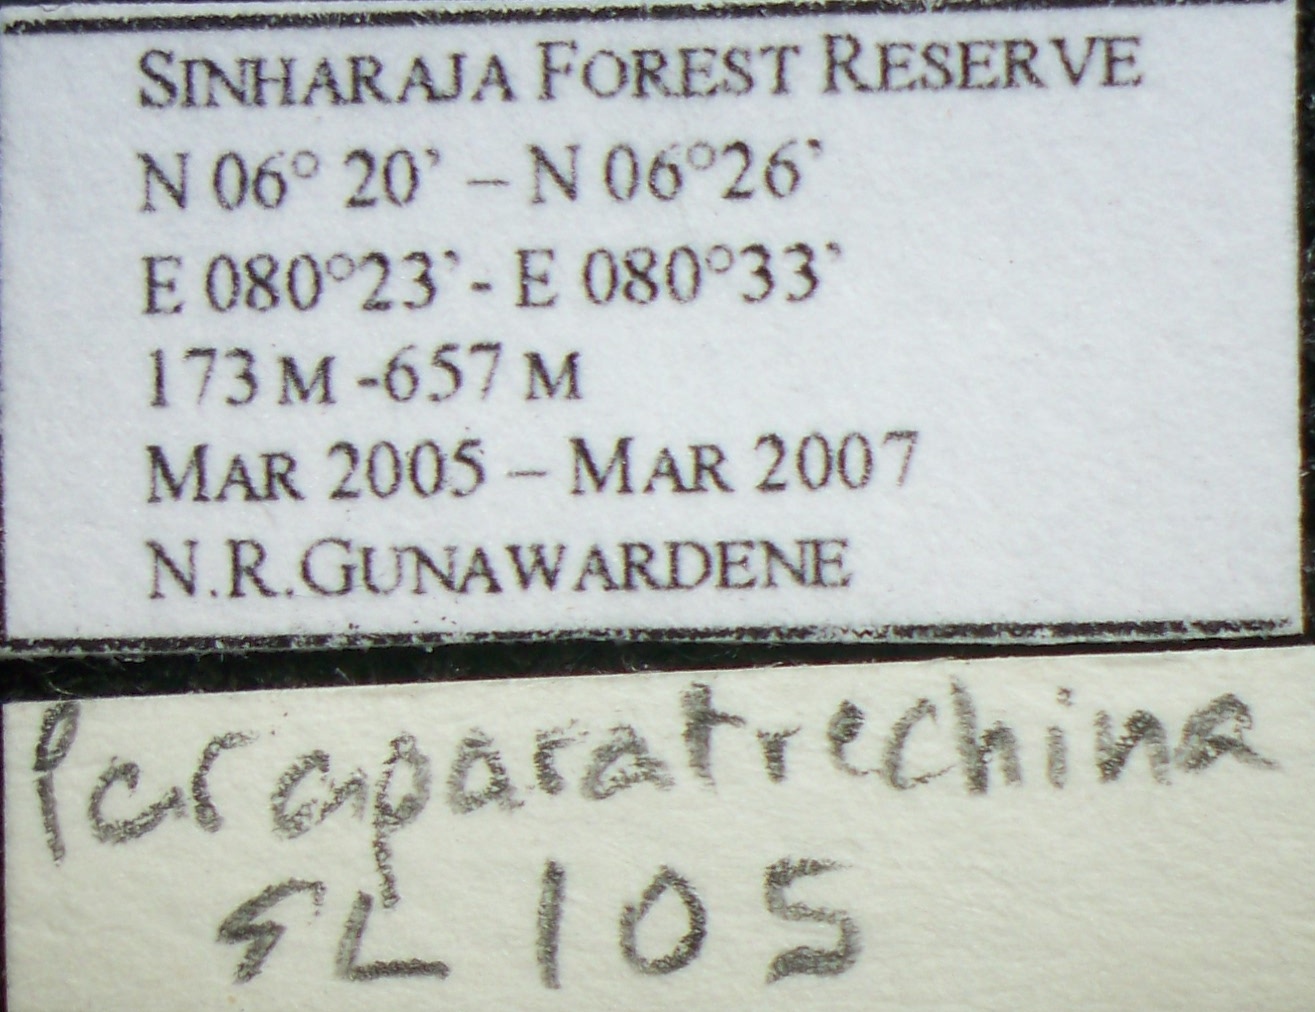 SINHARAJA FOREST RESERVE
N 06° 20’ – N 06°26’
E 080°23’- E 080°33’
173 M -657 M
MAR 2005 – MAR 2007
N.R.GUNAWARDENE
Paraparatrechina
SL 105